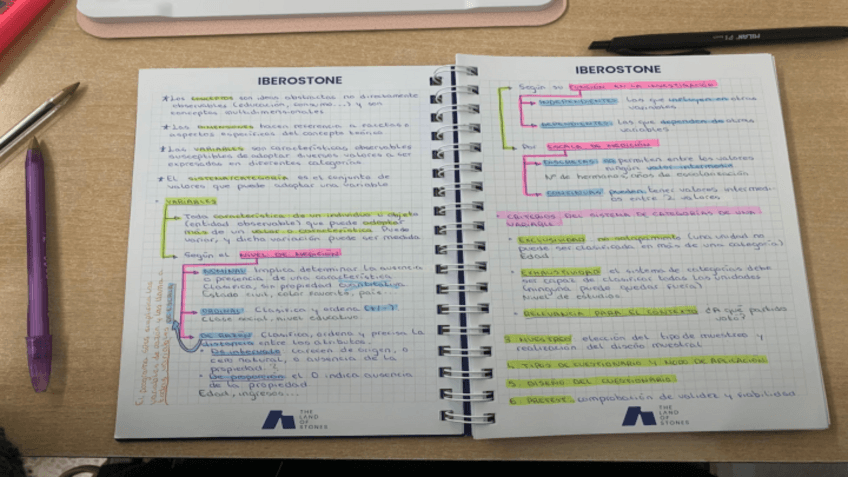 IBEROSTONE
* Los conceptos son ideas abstractas no directamente
observables (educación, consumo...) y son
conceptos multidimensionales
* Las dimensiones hacen referencia a facetas o
aspectos específicos del concepto teórico
* Las VARIABLES son características observables
susceptibles de adoptar diversos valores o ser
expresadas en diferentes categorías
* El SISTEMA CATEGORÍA es el conjunto de
valores que puede adoptar una variable
· VARIABLES
Toda característica de un individuo u objeto
(entidad observable) que puede adoptar
más de un valor o característica. Puede
variar, y dicha variación puede ser medida
Según el NIVEL DE MEDICIÓN
NOMINAL: Implica determinar la ausencia
o presencia de una característica
Clasifica, sin propiedad cuantitativa
Estado civil, color favorito, país...
ORDINAL: Clasifica y ordena
Clase social, nivel educativo
DE RAZÓN: Clasifica, ordena y precisa la
distancia entre los atributos.
· De intervalo: carecen de origen, o
cero natural, o ausencia de la
propiedad.
· De proporción: el 0 indica ausencia
de la propiedad
Edad, ingresos...
THE
LAND
OF
STONES
IBEROSTONE
Según su FUNCIÓN EN LA INVESTIGACIÓN
INDEPENDIENTES: Las que influyen en otras
variables
DEPENDIENTES: Las que dependen de otras
variables
Por ESCALA DE MEDICIÓN
DISCRETAS: no permiten entre los valores
ningún valor intermedio
Nº de hermanos, años de escolarización
CONTINUAS: pueden tener valores intermed-
ios entre 2 valores
· CRITERIOS DEL SISTEMA DE CATEGORÍAS DE UNA
VARIABLE
· EXCLUSIVIDAD: no solapamiento (una unidad no
puede ser clasificada en más de una categoría)
Edad
· EXHAUSTIVIDAD: el sistema de categorías debe
ser capaz de clasificar todas las unidades
(ninguna puede quedar fuera)
Nivel de estudios
· RELEVANCIA PARA EL CONTEXTO: ¿A qué partido
vota?
3. MUESTREO: elección del tipo de muestreo y
realización del diseño muestral
4. TIPOS DE CUESTIONARIO Y MODO DE APLICACIÓN
5. DISEÑO DEL CUESTIONARIO
6. PRETEST: comprobación de validez y fiabilidad
THE
LAND
OF
STONES